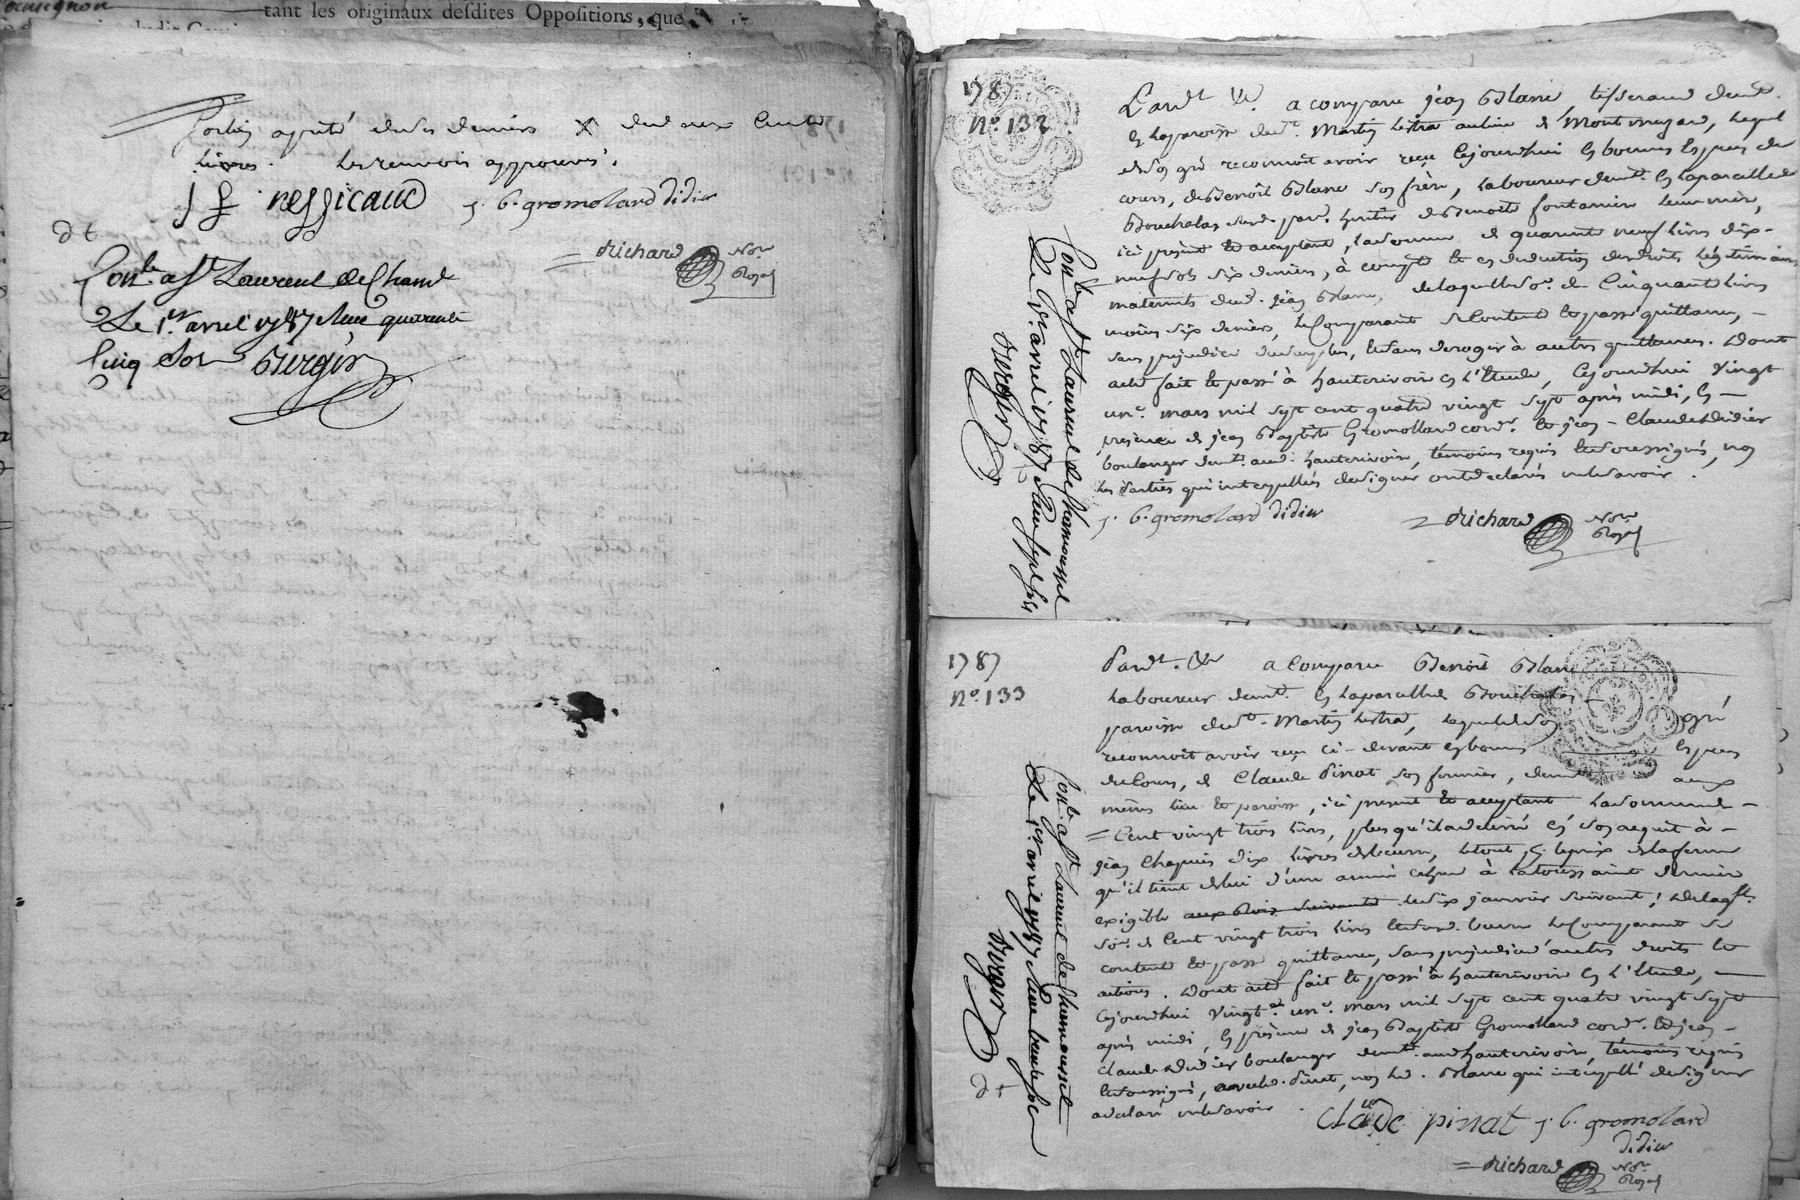 tant les originaux desdites Oppositions, que
livres. Les renvois approuvés.
j f nessicaud j. b. gromolard didier
Richard Nore Royal
dt
Conlé a St Laurent de Cham.
Le 1er avril 1787 Reçu quarente
Cinq sols Bergir
1787
No. 132
Pardt &c. a comparu jean Blanc, tisserand demt.
en la paroisse de St. Martin Lestra au lieu de Montmezard, lequel
de son gré reconnoit avoir reçu cejourdhui en bonnes Especes de
cours, de Benoît Blanc son frère, Laboureur demt. en la parcelle de
Bouchalas susd. par. heritier de Benoite fontanier leur mère,
ici present et acceptant, la somme de quarante neuf livres dix-
neuf sols six deniers, à compte et en deduction des droits légitimaires
maternels dud. jean Blanc, de laquelle so. de Cinquante livres
moins six deniers, le Comparant se Contente et passe quittance, -
sans prejudice du surplus, et sans deroger à autres quittances. Dont
acte fait et passé à hauterivoire en l'Etude, cejourdhui Vingt
un. mars mil sept cent quatre vingt sept après midi, en -
presence de jean Baptiste Gromollard cordr. et jean - Claude Didier
boulanger demt. aud. hauterivoire, témoins requis et soussignés, non
les Parties qui interpellées de signer ont declarés ne le savoir.
j. b. gromolard didier
Richard Nore Royal
Conlé a St Laurent de Chamousset
Le 1er avril 1787
Bergir
1787
No. 133
Pardt. &c a Comparu Benoit Blanc
Laboureur demt. en la parcelle de Bouchalas
paroisse de St. Martin Lestra, lequel de son gré
reconnoit avoir reçu ci-devant en bonnes Especes
de Cours, de Claude Pinat son fermier, demt. aux
mêmes lieu et paroisse, ici present et acceptant la somme de -
Cent vingt trois livres, plus qu'il a delivré en son acquit à -
jean Chapuis dix livres de beurre, le tout pr. le prix de la ferme
qu'il tient de lui d'une année echue à la toussaint derniere
exigible aux Rois suivants le six janvier suivant; de laqlle.
so. de Cent vingt trois livres et susd. beurre le Comparant se
contente et passe quittance, sans prejudice d'autres droits et
actions. Dont acte fait et passé à hauterivoire en l'Etude, -
cejourdhui Vingt. un. mars mil sept cent quatre vingt sept
après midi, en presence de jean Baptiste Gromollard cordr. et jean -
Claude Didier boulanger demt. aud hauterivoire, témoins requis
et soussignés, avec led. Pinat, non led. Blanc qui interpellé de signer
a declaré ne le savoir.
Claude pinat j. b. gromolard
didier
Richard Nore Royal
Conlé a St Laurent de Chamousset
Le 1er avril 1787
Bergir
dt